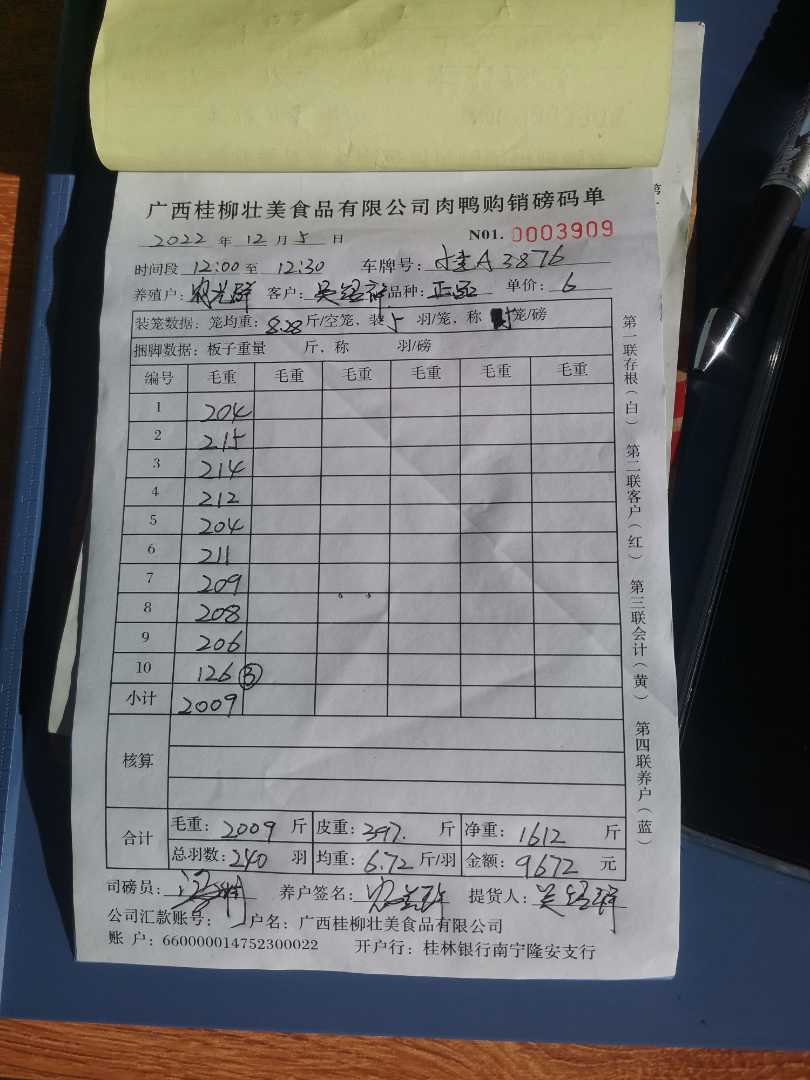 广西桂柳壮美食品有限公司肉鸭购销磅码单
2022 年 12 月 5 日 N01. 0003909
时间段 12:00 至 12:30 车牌号: 桂A3876
养殖户: 客户: 吴 品种: 正品 单价: 6
装笼数据: 笼均重: 8.28 斤/空笼, 装 5 羽/笼, 称 笼/磅
捆脚数据: 板子重量 斤, 称 羽/磅
编号 毛重 毛重 毛重 毛重 毛重 毛重
1 204
2 215
3 214
4 212
5 204
6 211
7 209
8 208
9 206
10 126 ③
小计 2009
核算
合计 毛重: 2009 斤 皮重: 397. 斤 净重: 1612 斤
总羽数: 240 羽 均重: 6.72 斤/羽 金额: 9672 元
司磅员: 养户签名: 提货人: 吴
公司汇款账号: 户名: 广西桂柳壮美食品有限公司
账 户: 660000014752300022 开户行: 桂林银行南宁隆安支行
第一联存根(白) 第二联客户(红) 第三联会计(黄) 第四联养户(蓝)